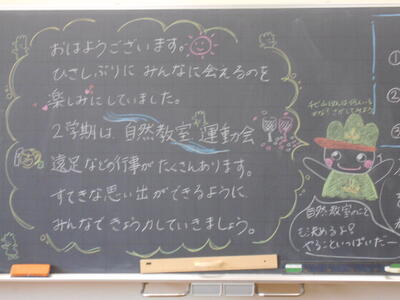 おはようございます。
ひさしぶりに みんなに会えるのを
楽しみにしていました。
2学期は 自然教室 運動会
遠足などの行事がたくさんあります。
すてきな思い出ができるように
みんなで きょう力していきましょう。
自然教室のこと
も決めるよ!
やることいっぱいだー
①
②
③